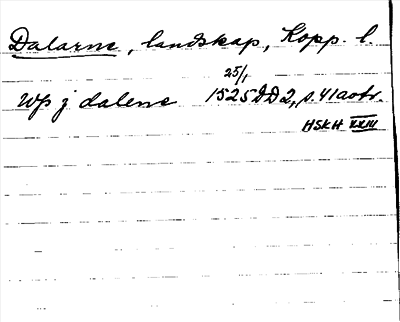 Dalarne, landskap, Kopp. l.
25/1
wp j dalene 1525 DD2, s. 41 a otr.
HSKH XXIII